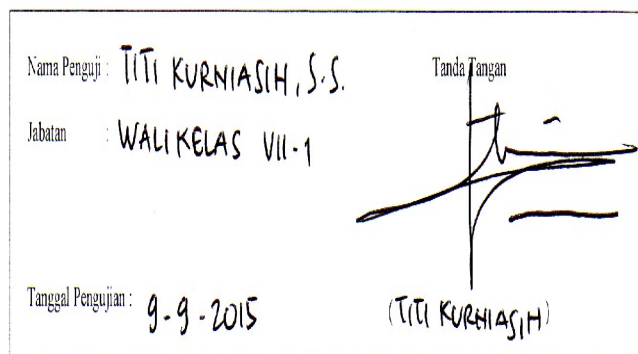 Nama Penguji : TITI KURNIASIH, S.S.
Tanda Tangan
Jabatan : WALI KELAS VII-1
Tanggal Pengujian : 9-9-2015
(TITI KURNIASIH)